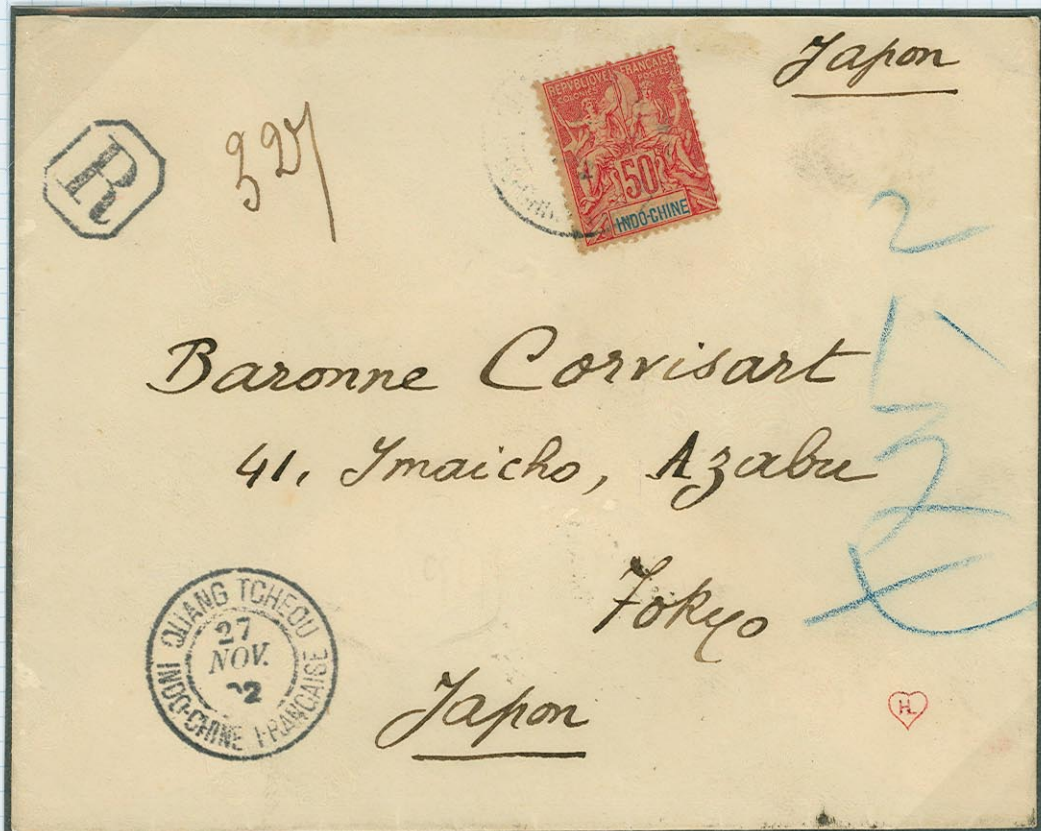 Japon
R
327
REPVBLIQVE FRANÇAISE
COLONIES POSTES
50
INDO-CHINE
Baronne Corvisart
41, Imaicho, Azabu
Tokyo
Japon
QUANG TCHEOU
27
NOV.
INDO-CHINE FRANÇAISE
HL